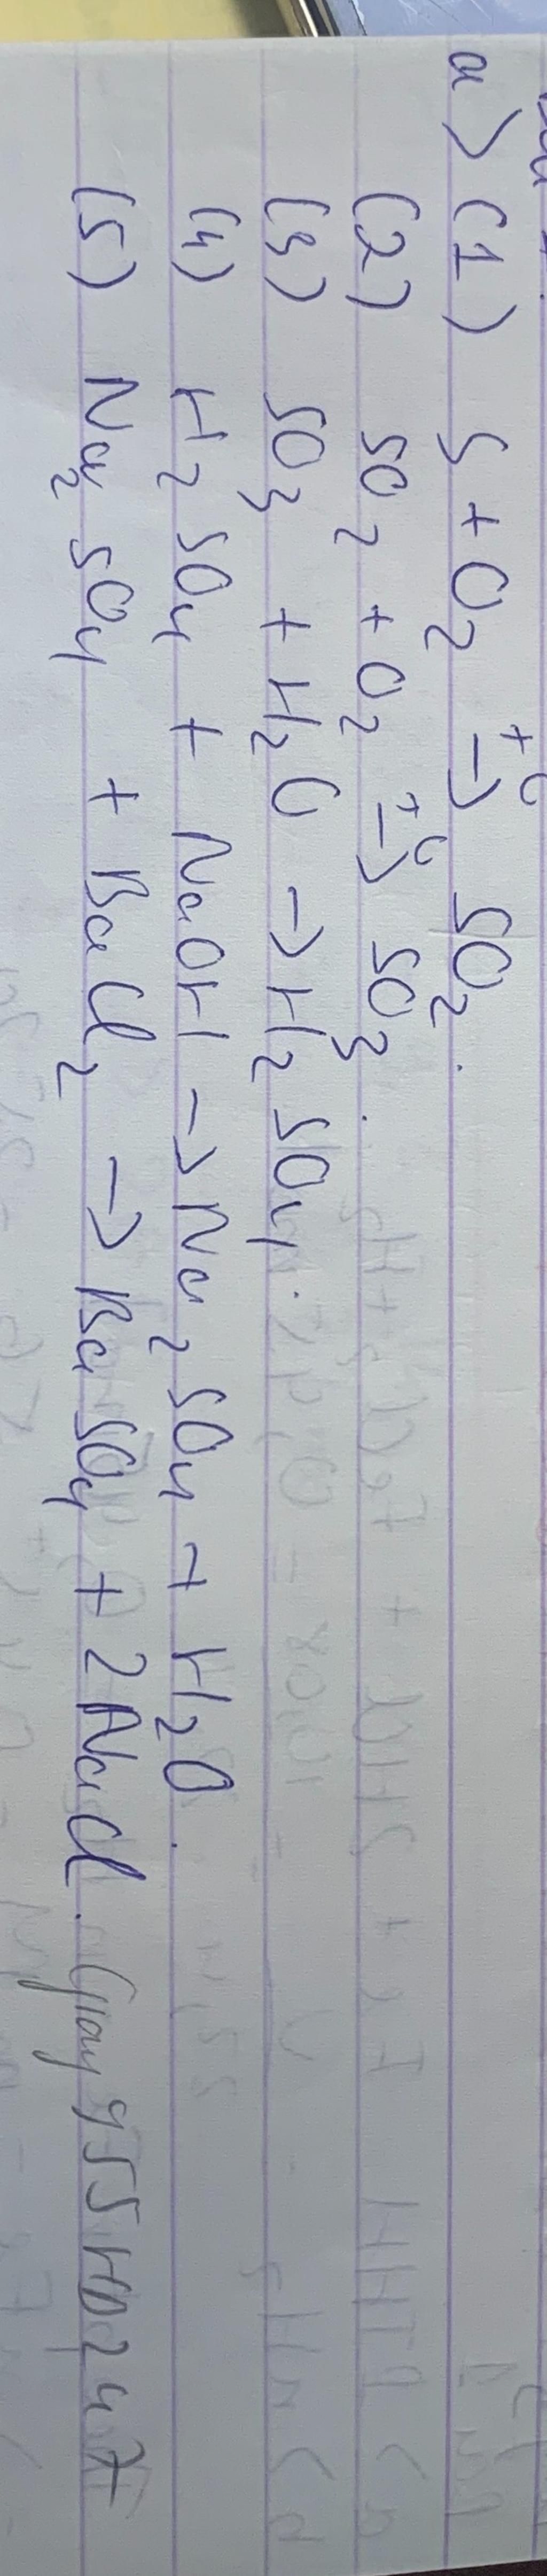 a> (1) S + O2 t°-> SO2.
(2) SO2 + O2 t°-> SO3.
(3) SO3 + H2O -> H2SO4.
(4) H2SO4 + NaOH -> Na2SO4 + H2O.
(5) Na2SO4 + BaCl2 -> BaSO4 + 2NaCl. Giay955HD247